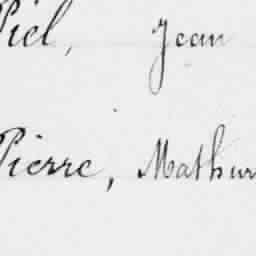 Piel, Jean
Pierre, Mathur